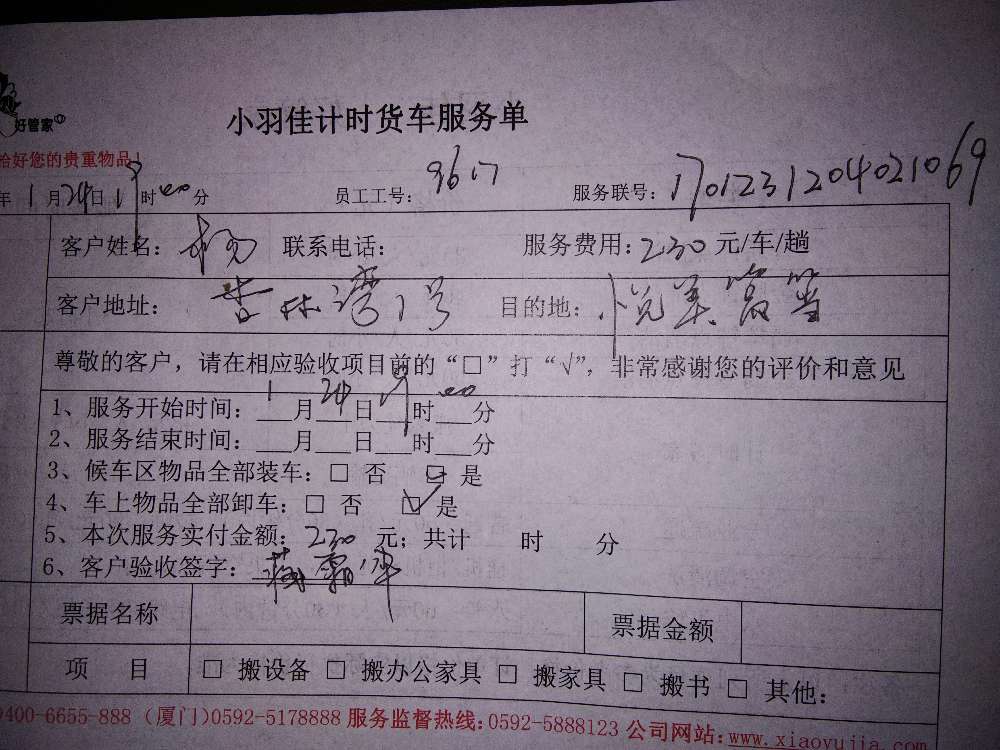 好管家
小羽佳计时货车服务单
给好您的贵重物品！
年1月24日 时00分 员工工号：9617 服务联号：1701231204021069
客户姓名：杨 联系电话： 服务费用：230元/车/趟
客户地址：杏林湾1号 目的地：悦美筼筜
尊敬的客户，请在相应验收项目前的“□”打“√”，非常感谢您的评价和意见
1、服务开始时间：1月24日 时00分
2、服务结束时间：___月___日___时___分
3、候车区物品全部装车：□ 否 ☑ 是
4、车上物品全部卸车：□ 否 ☑ 是
5、本次服务实付金额：230 元；共计 时 分
6、客户验收签字：
票据名称 票据金额
项 目 □ 搬设备 □ 搬办公家具 □ 搬家具 □ 搬书 □ 其他：
9400-6655-888（厦门)0592-5178888 服务监督热线:0592-5888123 公司网站:www.xiaoyujia.com